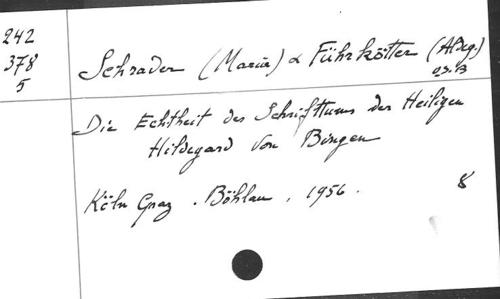 242
378
5
Schrader (Maria) & Führkötter (Aldeg.)
o.s.B
Die Echtheit des Schrifttums der Heiligen
Hildegard von Bingen
Köln Graz . Böhlau . 1956 .
8